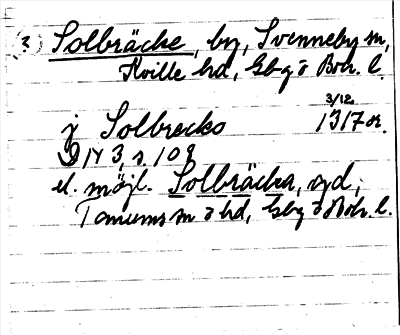 (3) Solbräcke, by, Svenneby sn,
Kville hd, Gbg o Boh. l.
3/12
j Solbrecko 1317 or.
DN 3, s. 109
el. möjl. Solbräcka, syd,
Tanums sn o hd, Gbg o Boh. l.